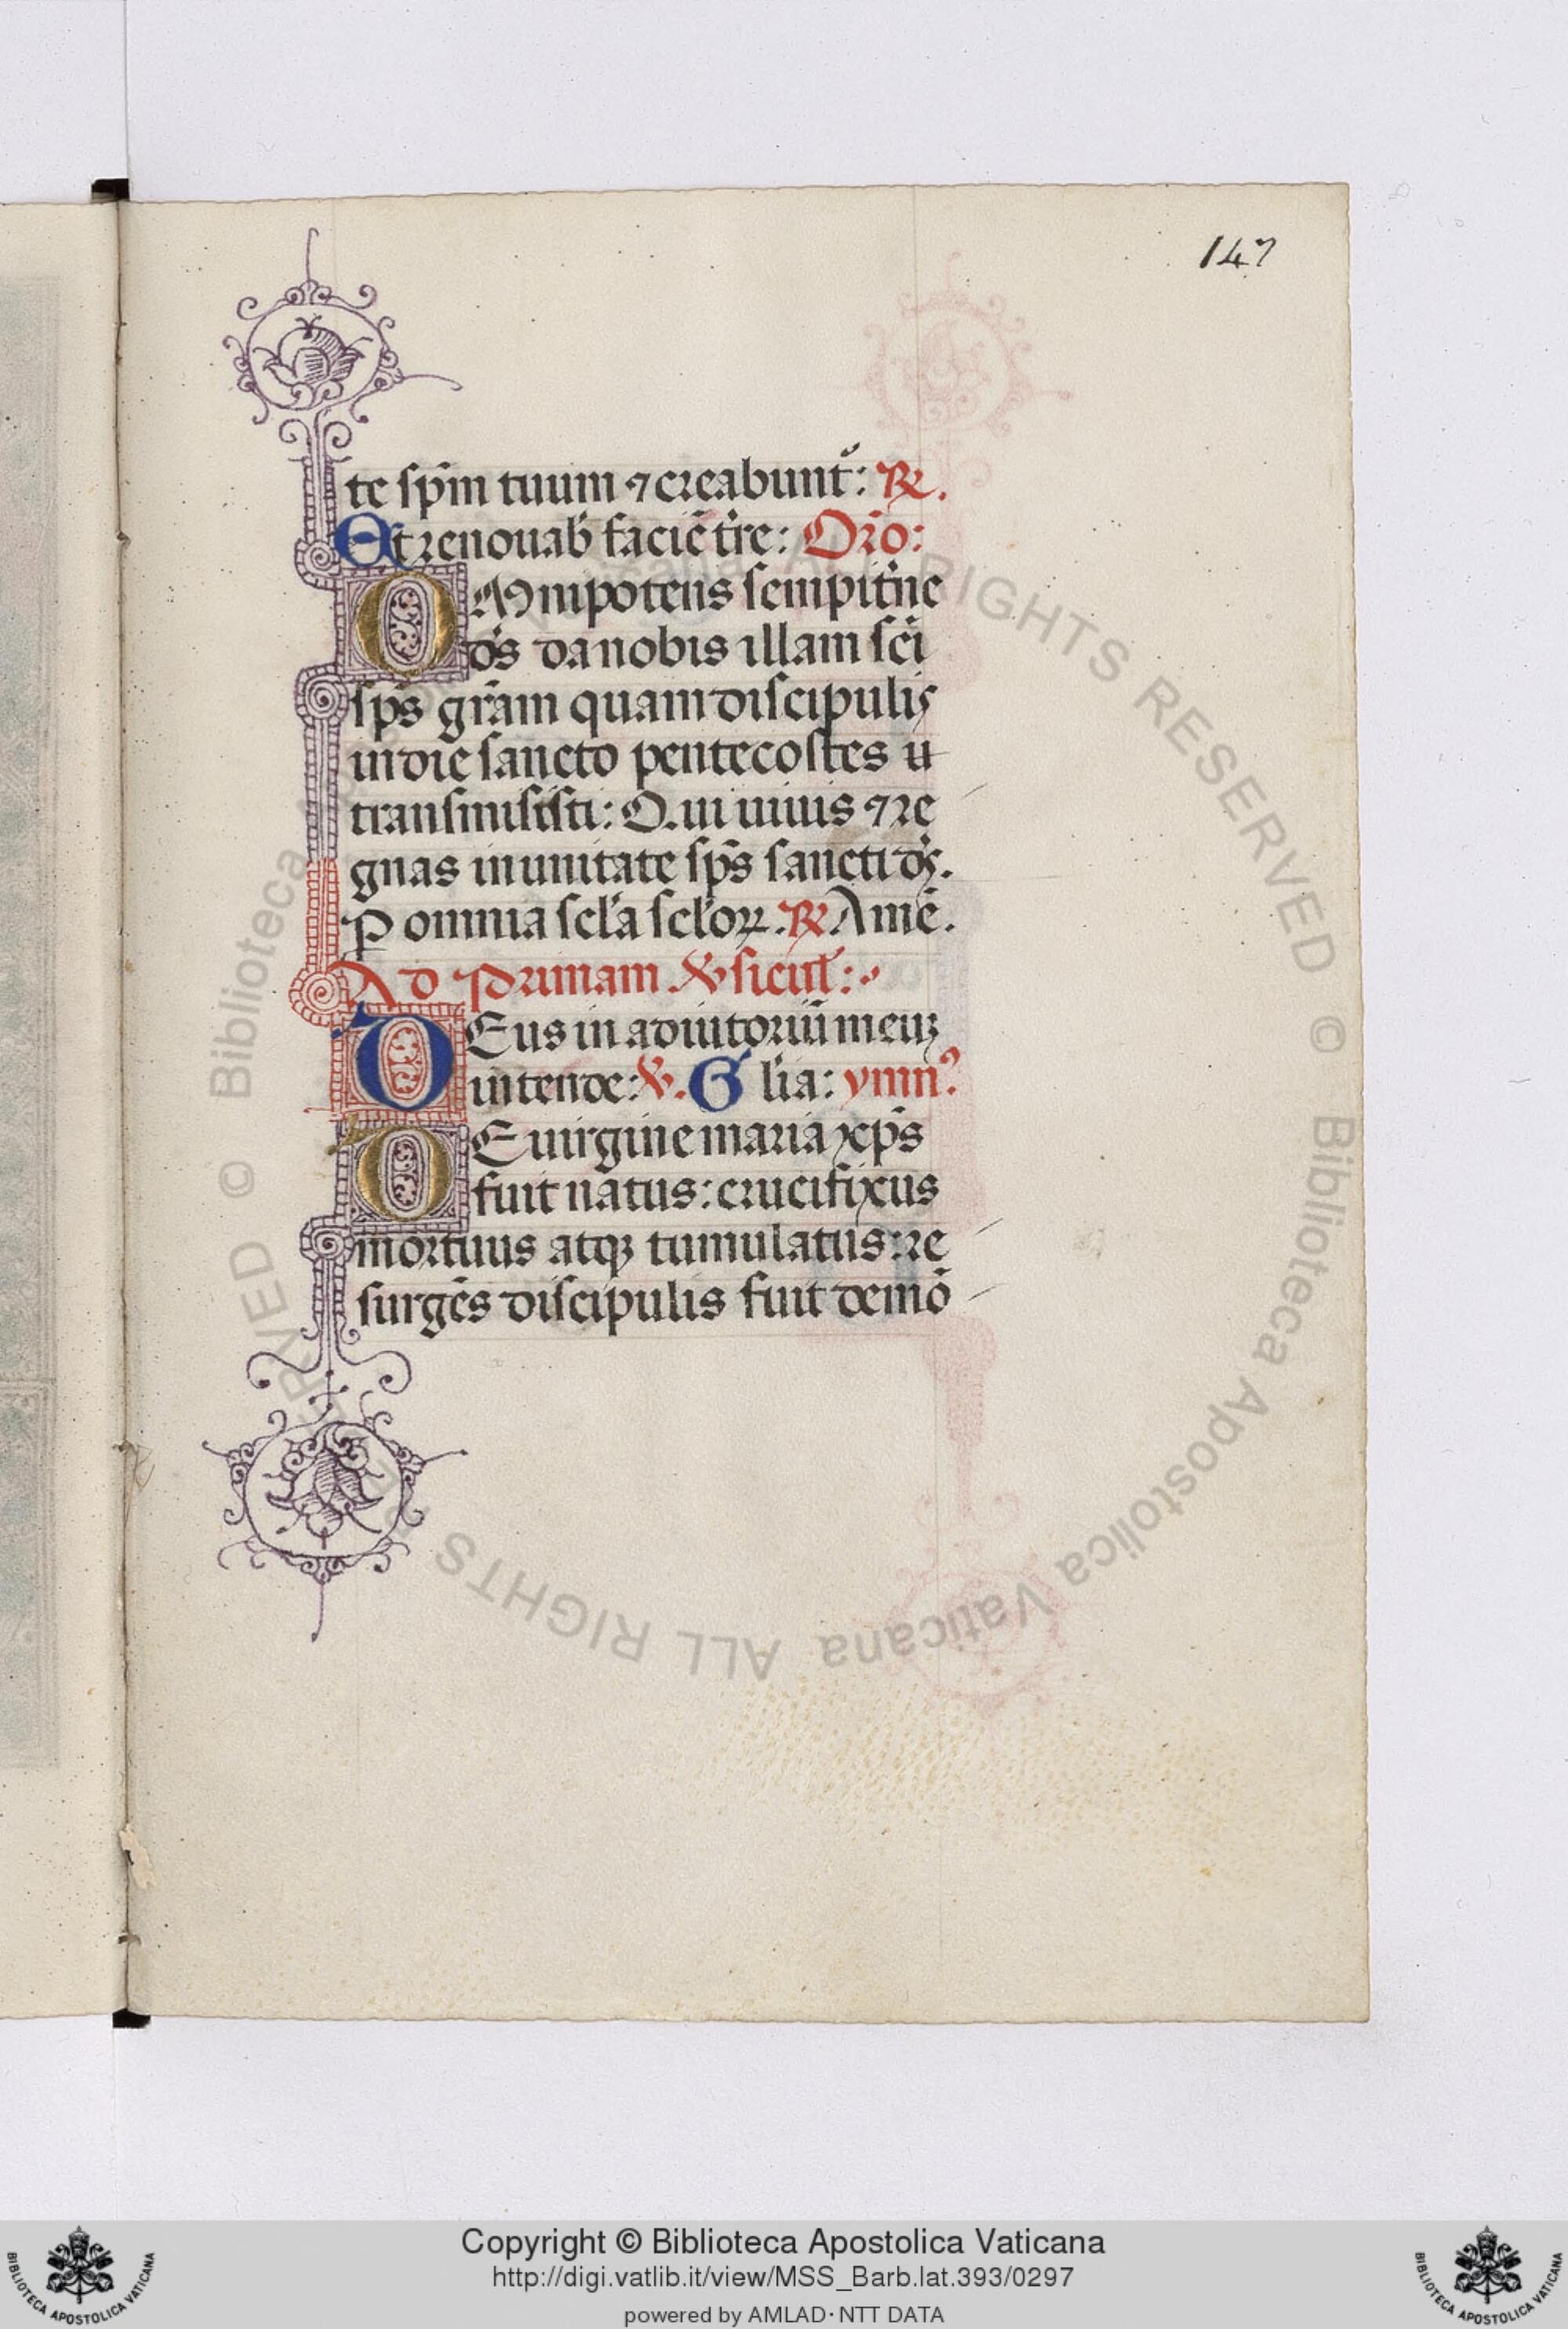 147
te sp̄m tuum ⁊ creabunt᷑: ℟.
Et renouab̄ faciē tr̄e: Or̄o:
OMnipotens sempit̄ne
ds̄ da nobis illam sc̄i
sp̄s gr̄am quam discipulis
in die sancto pentecostes
transmisisti: Qui uiuis ⁊ re
gnas in unitate sp̄s sancti ds̄.
P̱ omnia scl̄a scl̄oꝝ. ℟ Amē.
Ad Primam ℣ sicut:
DEus in adiutoriū meuꝫ
intende: ℣. Gl̄ia: ymnꝰ.
DE uirgine maria xp̄s
fuit natus: crucifixus
mortuus atqꝫ tumulatus: re
surgēs discipulis fuit demō
© Biblioteca Apostolica Vaticana ALL RIGHTS RESERVED © Biblioteca Apostolica Vaticana ALL RIGHTS RESERVED
Copyright © Biblioteca Apostolica Vaticana
http://digi.vatlib.it/view/MSS_Barb.lat.393/0297
powered by AMLAD·NTT DATA
BIBLIOTECA APOSTOLICA VATICANA
BIBLIOTECA APOSTOLICA VATICANA